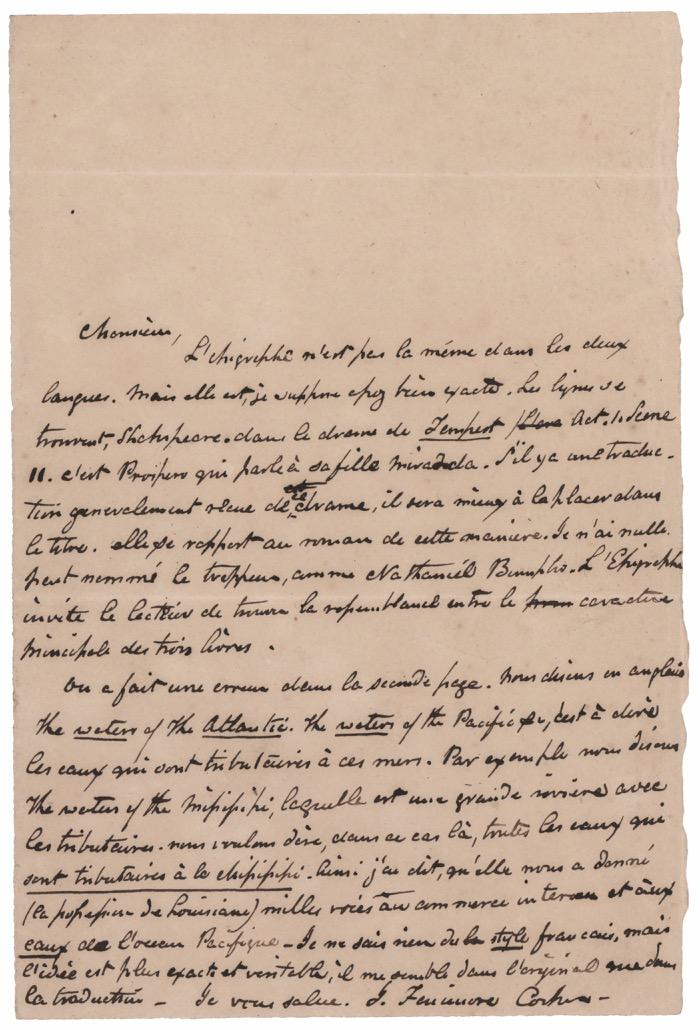 Monsieur,
L'epigraphe n'est pas la même dans les deux
langues. Mais elle est, je suppose assez bien exacte. Les lignes se
trouvent, Shakspeare. dans le drame de Tempest Act. 1. Scene
11. c'est Prospero qui parle à sa fille Miranda. S'il y a une traduc-
tion generalement recue de ce drame, il sera mieux à la placer dans
le titre. elle se rapport au roman de cette manière. Je n'ai nulle
part nommé le trappeur, comme Nathaniél Bumpho. L'Epigraphe
invite le lecteur de trouver la resemblance entre le caractere
principale des trois livres.
On a fait une erreur dans la seconde page. Nous disons en anglais
the waters of the Atlantic. the waters of the Pacific &c, c'est à dire
les eaux qui sont tributaires à ces mers. Par exemple nous disons
the waters of the Missisippi, laquelle est une grande rivière avec
les tributaires. nous voulons dire, dans ce cas là, toutes les eaux qui
sont tributaires à la Missisippi. Ainsi j'ai dit, qu'elle nous a donné
(la possession de Louisiane) milles voies au commerce interieur et aux
eaux de l'ocean Pacifique — Je ne sais rien du style francais, mais
l'idée est plus exacte et veritable, il me semble dans l'original que dans
la traduction — Je vous salue. J. Fenimore Cooper —